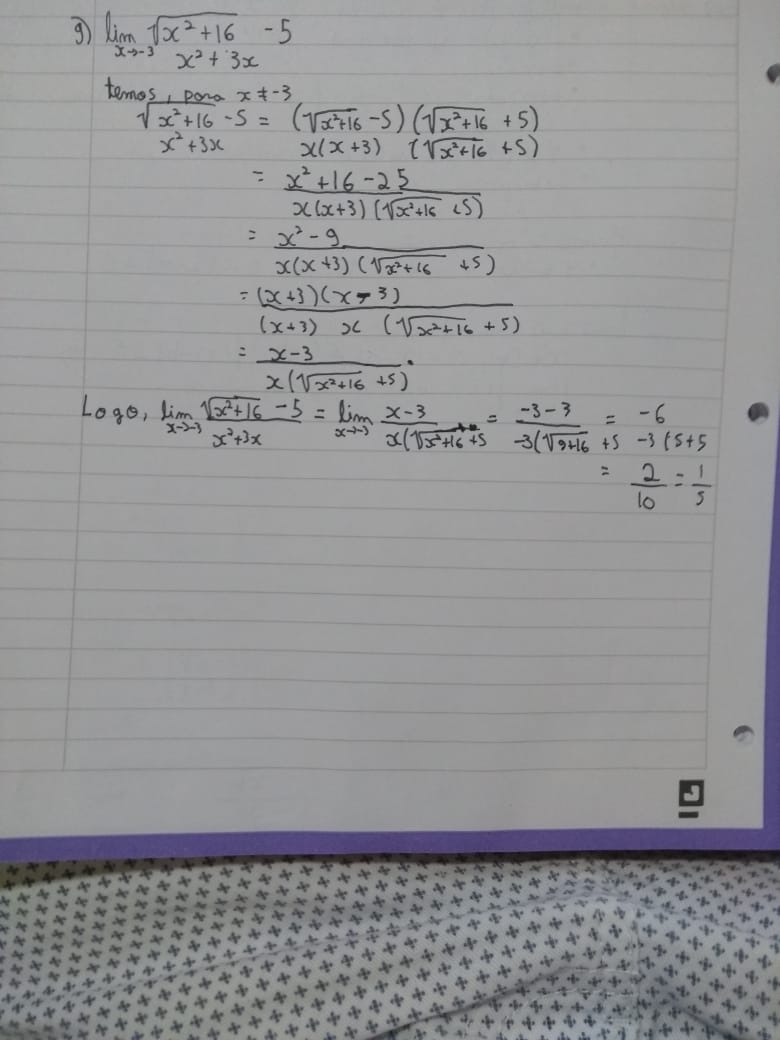 g) lim √x²+16 - 5
x→-3 x² + 3x
temos, para x ≠ -3
√x²+16 - 5 = (√x²+16 - 5) (√x²+16 + 5)
x²+3x x(x+3) (√x²+16 + 5)
= x²+16-25
x(x+3)(√x²+16 + 5)
= x² - 9
x(x+3)(√x²+16 + 5)
= (x+3)(x-3)
(x+3) x (√x²+16 + 5)
= x-3
x(√x²+16 + 5).
Logo, lim √x²+16 - 5 = lim x-3 = -3-3 = -6
x→-3 x²+3x x→-3 x(√x²+16 +5 -3(√9+16 +5 -3(5+5
= 2 = 1
10 5